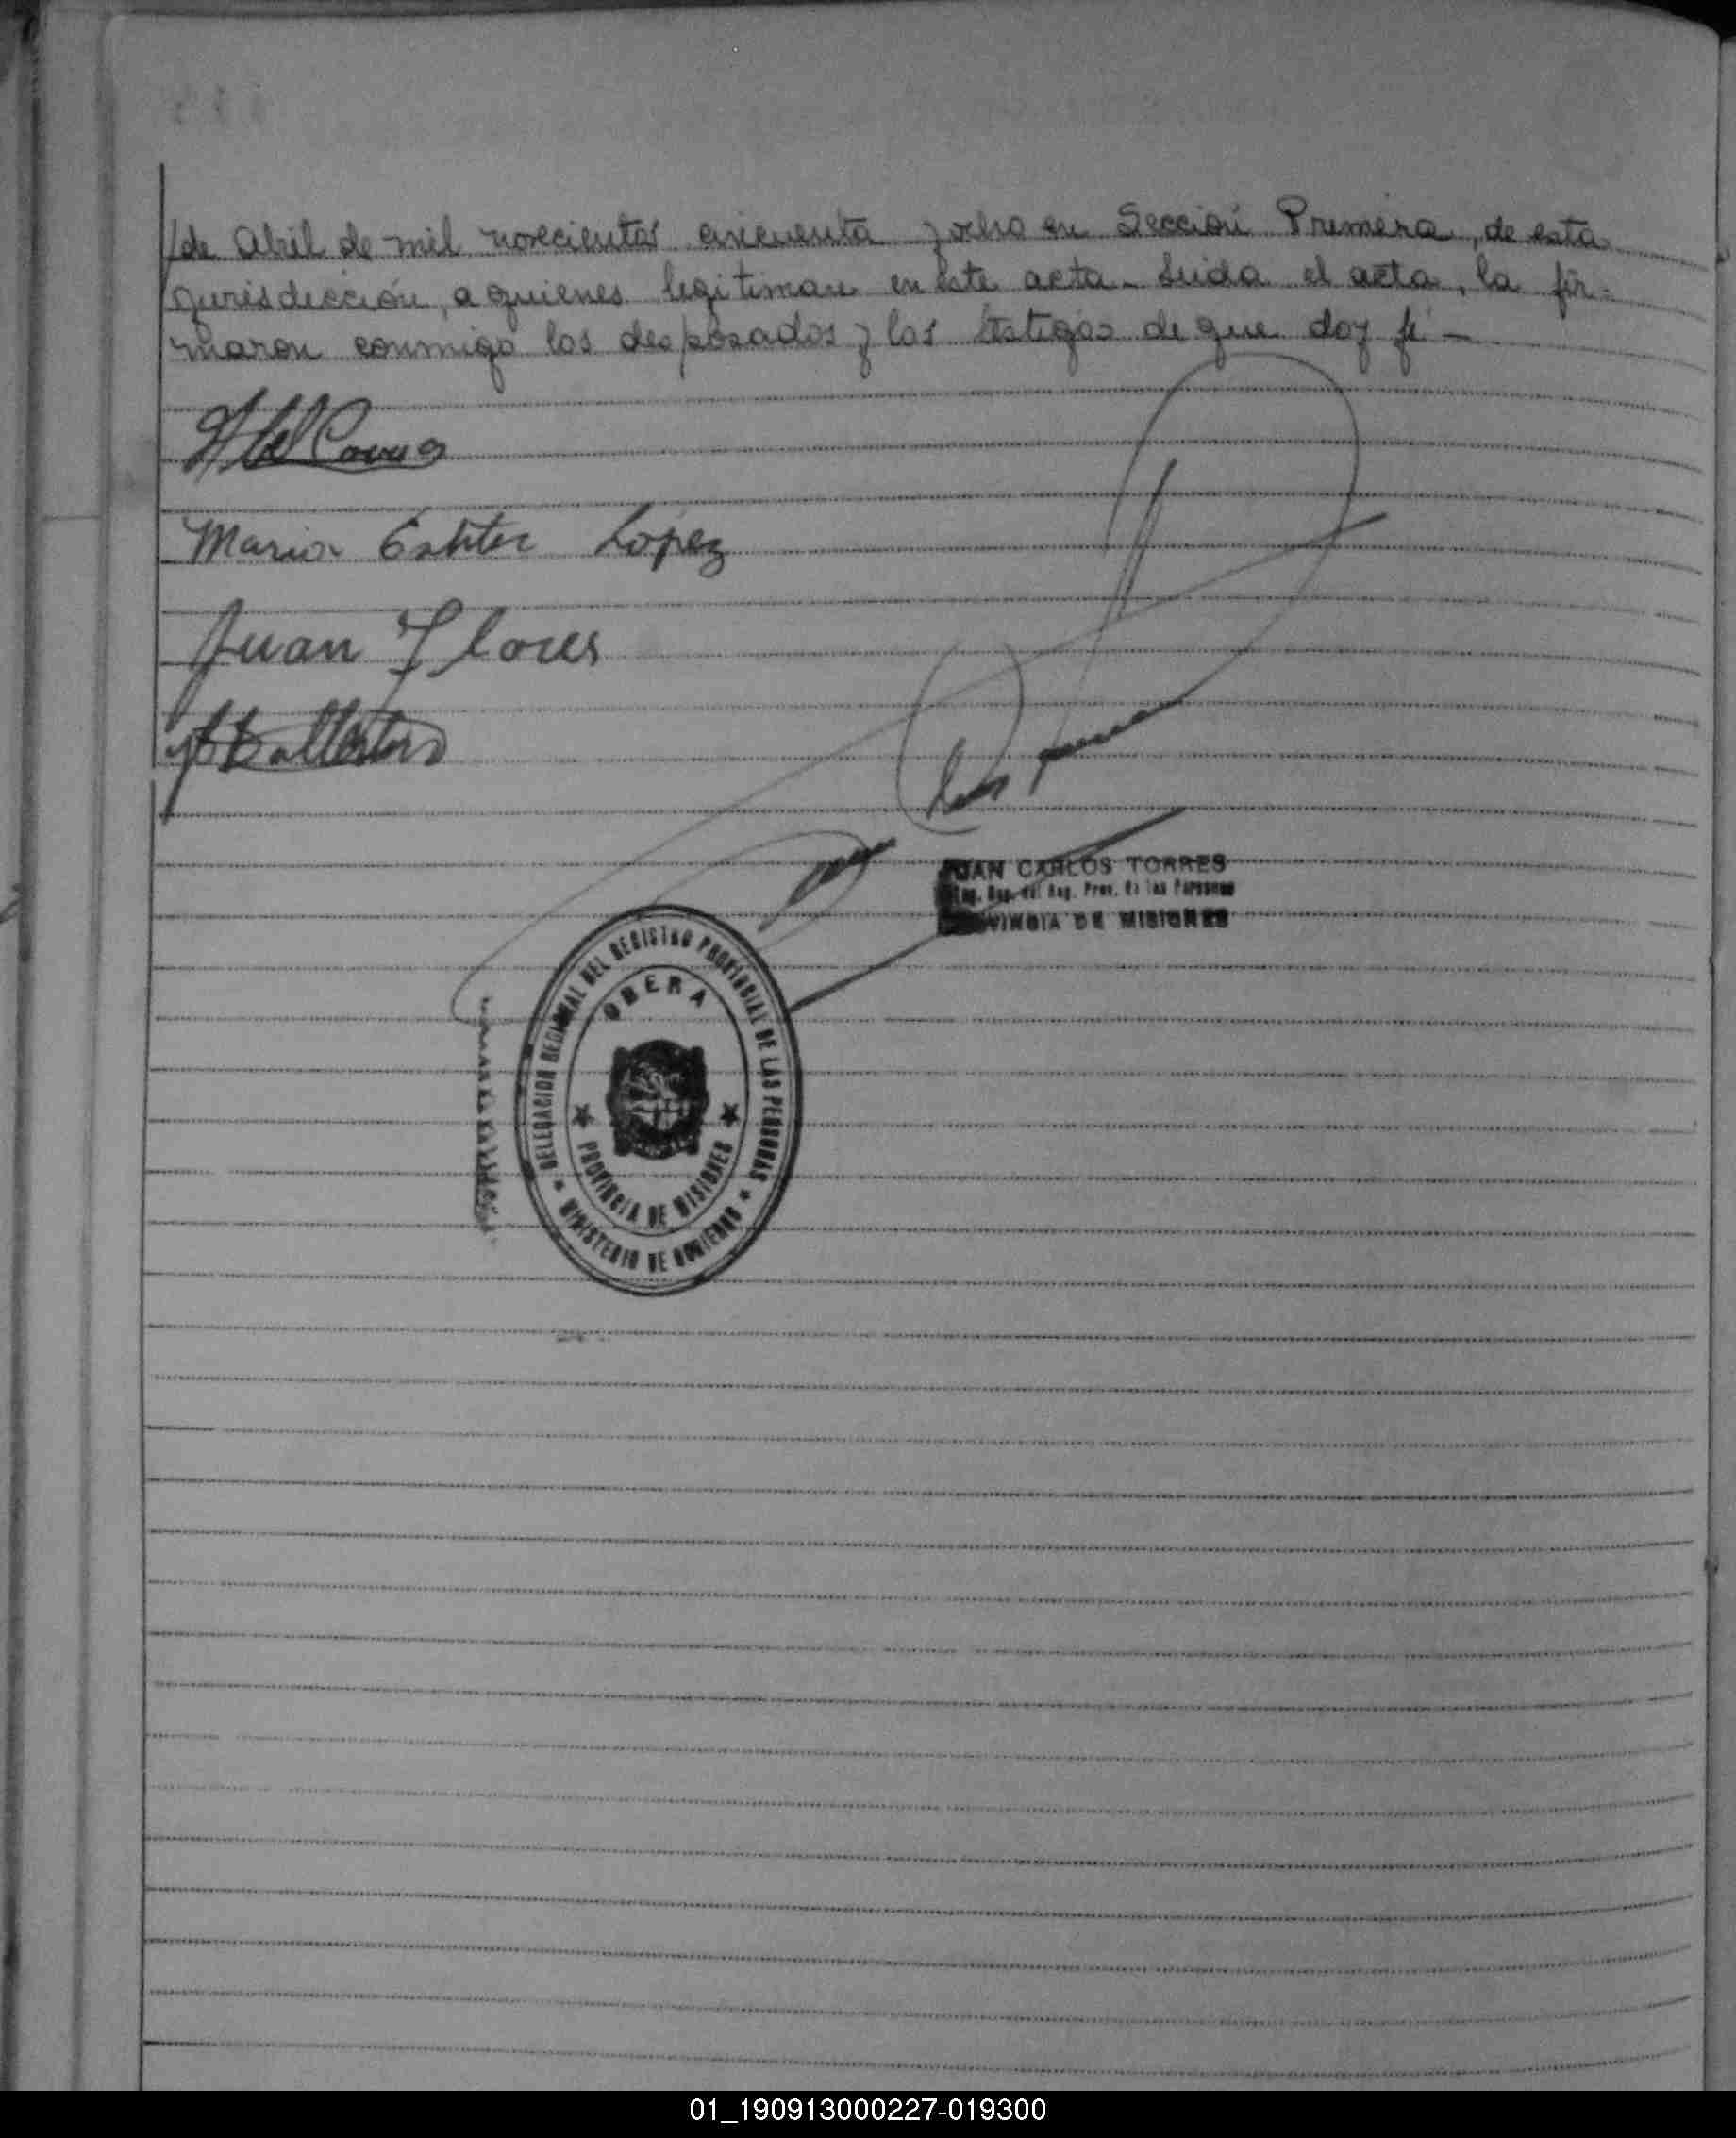 /de Abril de mil novecientos cincuenta y ocho en Sección Primera, de esta
jurisdicción, a quienes legitiman en este acta. Leida el acta, la fir-
maron conmigo los desposados y los testigos de que doy fé -
Maria Esther López
Juan Flores
JUAN CARLOS TORRES
PROVINCIA DE MISIONES
DELEGACION REGIONAL DEL REGISTRO PROVINCIAL DE LAS PERSONAS
OBERA
PROVINCIA DE MISIONES
MINISTERIO DE GOBIERNO
01_190913000227-019300